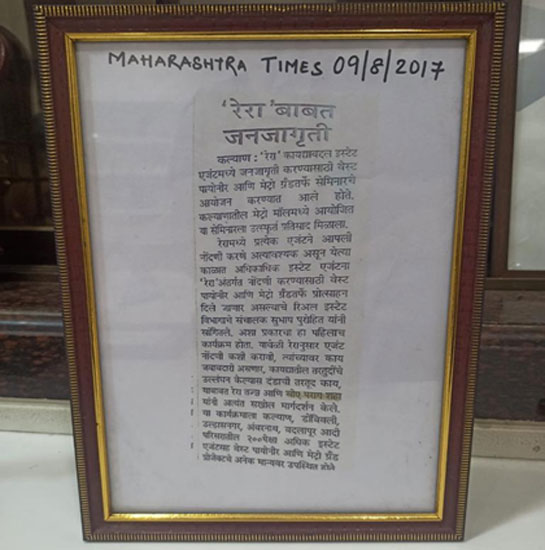 MAHARASHTRA TIMES 09/8/2017
'रेरा' बाबत
जनजागृती
कल्याण : 'रेरा' कायद्याबद्दल इस्टेट
एजंटमध्ये जनजागृती करण्यासाठी वेस्ट
पायोनीर आणि मेट्रो ग्रँडतर्फे सेमिनारचे
आयोजन करण्यात आले होते.
कल्याणातील मेट्रो मॉलमध्ये आयोजित
या सेमिनारला उत्स्फूर्त प्रतिसाद मिळाला.
रेरामध्ये प्रत्येक एजंटने आपली
नोंदणी करणे अत्यावश्यक असून येत्या
काळात अधिकाधिक इस्टेट एजंटना
'रेरा'अंतर्गत नोंदणी करण्यासाठी वेस्ट
पायोनीर आणि मेट्रो ग्रँडतर्फे प्रोत्साहन
दिले जाणार असल्याचे रिअल इस्टेट
विभागाचे संचालक सुभाष पुरोहित यांनी
सांगितले. अशा प्रकारचा हा पहिलाच
कार्यक्रम होता. यावेळी रेरानुसार एजंट
नोंदणी कशी करावी, त्यांच्यावर काय
जबाबदारी असणार, कायद्यातील तरतुदींचे
उल्लंघन केल्यास दंडाची तरतूद काय,
याबाबत रेरा तज्ज्ञ आणि सीए पराग शहा
यांनी अत्यंत सखोल मार्गदर्शन केले.
या कार्यक्रमाला कल्याण, डोंबिवली,
उल्हासनगर, अंबरनाथ, बदलापूर आदी
परिसरातील २००पेक्षा अधिक इस्टेट
एजंटसह वेस्ट पायोनीर आणि मेट्रो ग्रँड
प्रोजेक्टचे अनेक मान्यवर उपस्थित होते